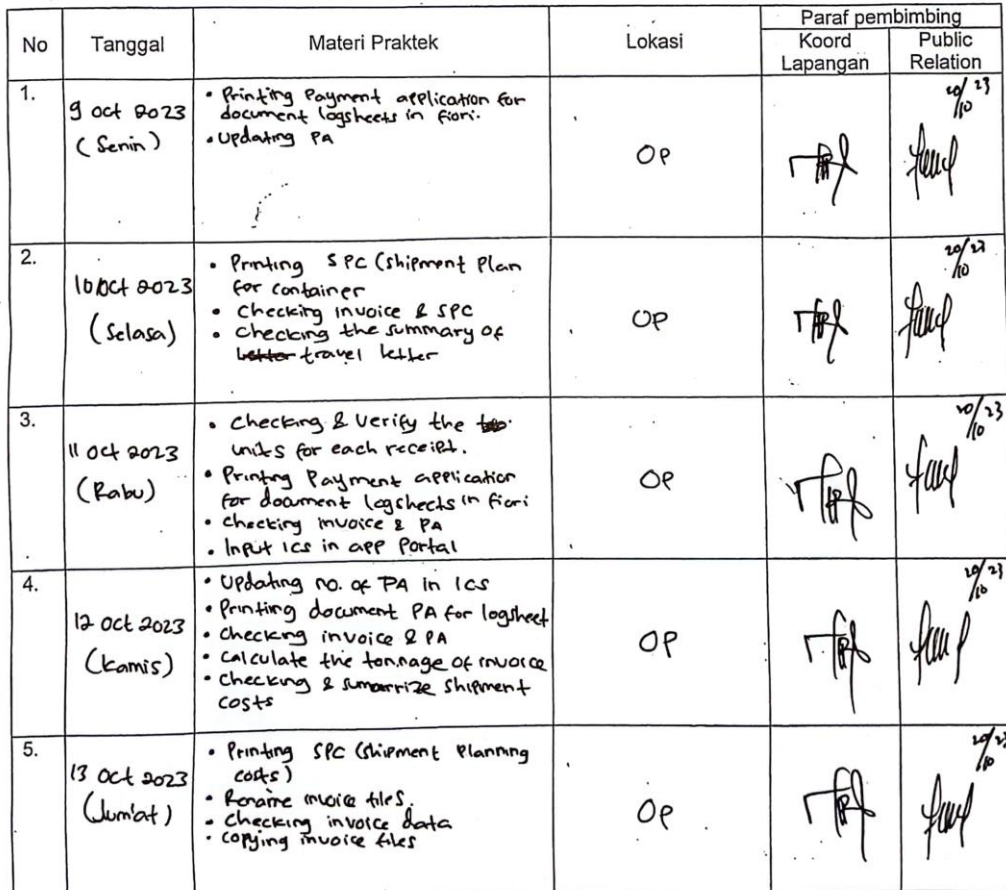 No
Tanggal
Materi Praktek
Lokasi
Paraf pembimbing
Koord
Lapangan
Public
Relation
1.
9 oct 2023
(Senin)
• Printing Payment application for
document logsheets in fiori.
• Updating PA
OP
20/10 23
2.
10 Oct 2023
(Selasa)
• Printing SPC (shipment Plan
for container
• Checking invoice & SPC
• Checking the summary of
travel letter
OP
20/10 23
3.
11 Oct 2023
(Rabu)
• Checking & Verify the
units for each receipt.
• Printing Payment application
for document logsheets in fiori
• Checking invoice & PA
• Input ICS in app Portal
OP
20/10 23
4.
12 Oct 2023
(Kamis)
• Updating no. of PA in ICS
• Printing document PA for logsheet
• Checking invoice & PA
• Calculate the tonnage of invoice
• Checking & sumarrize shipment
costs
OP
20/10 23
5.
13 Oct 2023
(Jum'at)
• Printing SPC (Shipment Planning
costs)
• Rename invoice files.
• Checking invoice data
• Copying invoice files
OP
20/10 23